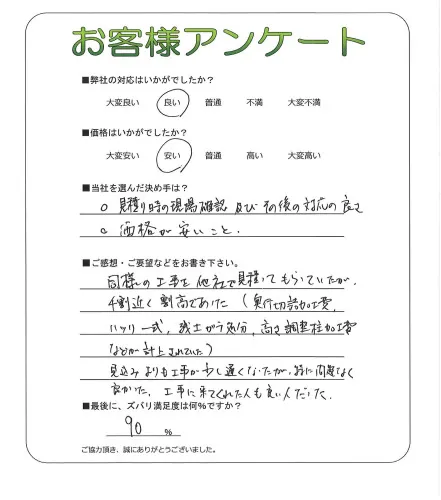 お客様アンケート
■弊社の対応はいかがでしたか?
大変良い 良い 普通 不満 大変不満
■価格はいかがでしたか?
大変安い 安い 普通 高い 大変高い
■当社を選んだ決め手は?
○ 見積り時の現場確認 及び その後の対応の良さ
○ 価格が安いこと.
■ご感想・ご要望などをお書き下さい。
同様の工事を他社で見積ってもらっていたが、
4割近く割高であった(奥行切詰加工費,
ハツリ一式, 残土ガラ処分, 高さ調整柱加工費
などが計上されていた)
見込みよりも工事が少し遅くなったが、特に問題なく
良かった. 工事に来てくれた人も良い人だった.
■最後に、ズバリ満足度は何%ですか?
90 %
ご協力頂き、誠にありがとうございました。